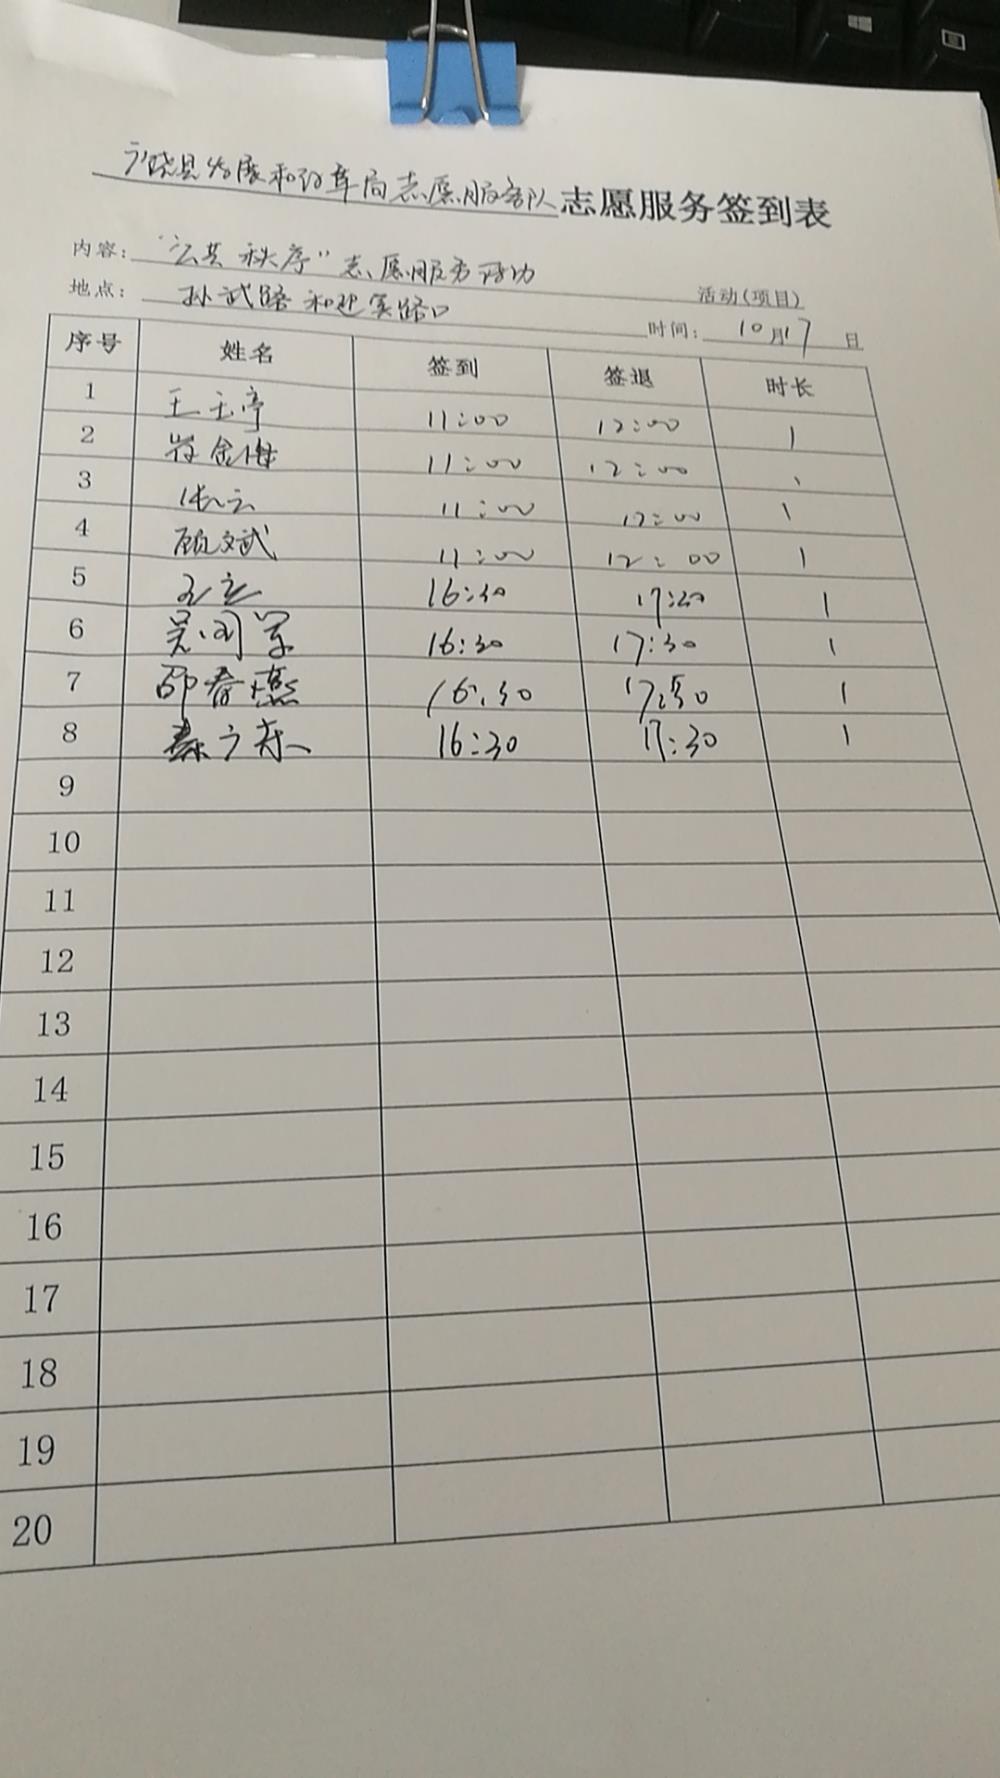 广饶县发展和改革局志愿服务队志愿服务签到表
内容：“公共秩序”志愿服务活动 活动(项目)
地点：孙武路和迎宾路口 时间：10月17日
序号 姓名 签到 签退 时长
1 王玉亭 11:00 12:00 1
2 11:00 12:00 1
3 张云 11:00 12:00 1
4 顾文斌 11:00 12:00 1
5 16:30 17:30 1
6 16:30 17:30 1
7 邵春燕 16:30 17:30 1
8 秦广东 16:30 17:30 1
9
10
11
12
13
14
15
16
17
18
19
20